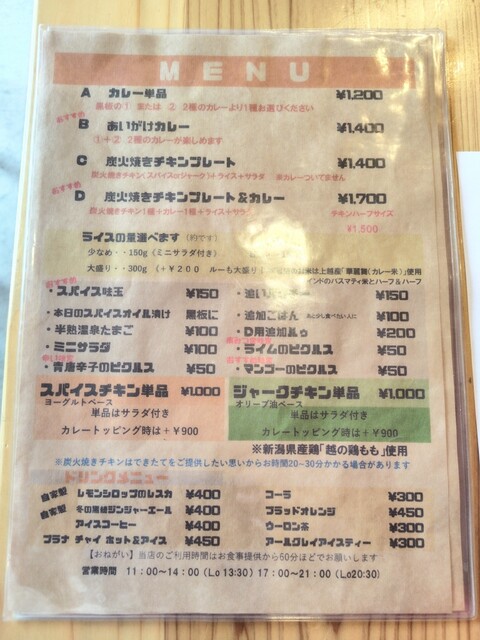 MENU
A カレー単品 ¥1,200
黒板の① または ② 2種のカレーより1種お選びください
おすすめ
B あいがけカレー ¥1,400
①+② 2種のカレーが楽しめます
C 炭火焼きチキンプレート ¥1,400
炭火焼きチキン(スパイスorジャーク)+ライス+サラダ ※カレーついてません
おすすめ
D 炭火焼きチキンプレート&カレー ¥1,700
炭火焼きチキン1種+カレー1種+ライス+サラダ チキンハーフサイズ
¥1,500
ライスの量選べます (約です)
少なめ・・150g(ミニサラダ付き)
大盛り・・300g (+¥200 ルーも大盛り) 米は上越産「華麗舞(カレー米)」使用
インドのバスマティ米とハーフ&ハーフ
おすすめ
・スパイス味玉 ¥150
・追い ¥150
・本日のスパイスオイル漬け 黒板に
・追加ごはん あと少し食べたい人に ¥100
・半熟温泉たまご ¥100
・D用追加ルゥ ¥200
・ミニサラダ ¥100
・ライムのピクルス ¥50
・青唐辛子のピクルス ¥50
おすすめ
・マンゴーのピクルス ¥50
スパイスチキン単品 ¥1,000
ヨーグルトベース
単品はサラダ付き
カレートッピング時は+¥900
ジャークチキン単品 ¥1,000
オリーブ油ベース
単品はサラダ付き
カレートッピング時は+¥900
※新潟県産鶏「越の鶏もも」使用
※炭火焼きチキンはできたてをご提供したい思いからお時間20~30分かかる場合があります
ドリンクメニュー
自家製 レモンシロップのレスカ ¥400
コーラ ¥300
自家製 冬の黒糖ジンジャーエール ¥400
ブラッドオレンジ ¥450
アイスコーヒー ¥400
ウーロン茶 ¥300
プラナ チャイ ホット&アイス ¥450
アールグレイアイスティー ¥300
【おねがい】当店のご利用時間はお食事提供から60分ほどでお願いします
営業時間 11:00~14:00(Lo 13:30) 17:00~21:00(Lo20:30)